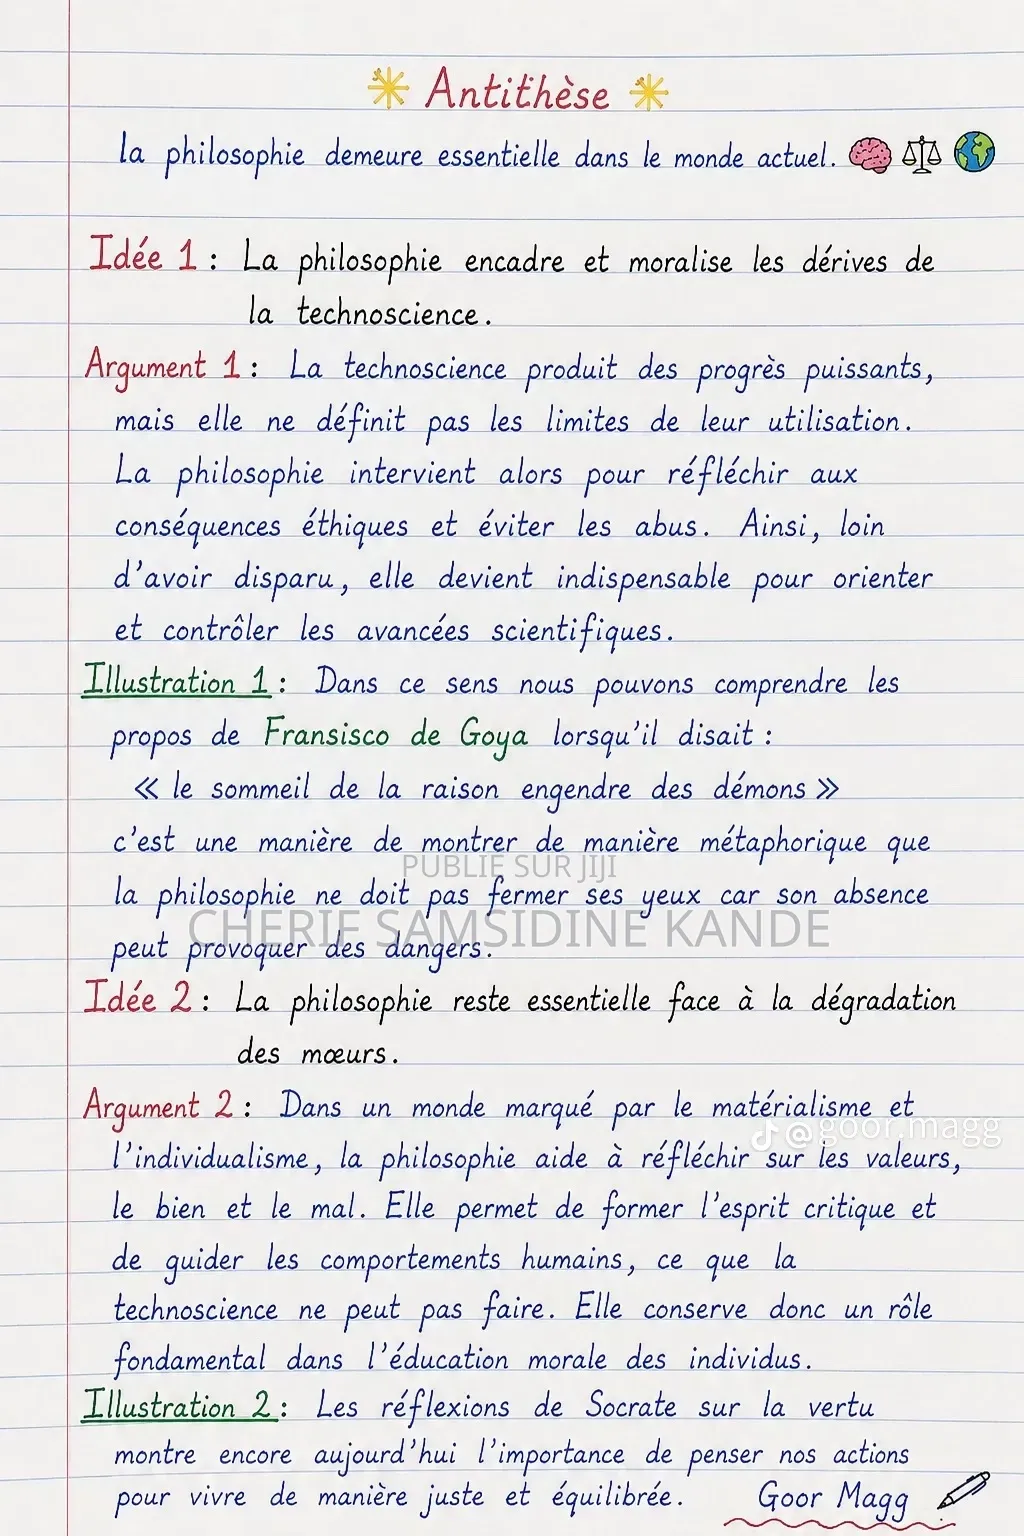 Antithèse
la philosophie demeure essentielle dans le monde actuel.
Idée 1 : La philosophie encadre et moralise les dérives de
la technoscience.
Argument 1 : La technoscience produit des progrès puissants,
mais elle ne définit pas les limites de leur utilisation.
La philosophie intervient alors pour réfléchir aux
conséquences éthiques et éviter les abus. Ainsi, loin
d'avoir disparu, elle devient indispensable pour orienter
et contrôler les avancées scientifiques.
Illustration 1 : Dans ce sens nous pouvons comprendre les
propos de Fransisco de Goya lorsqu'il disait :
« le sommeil de la raison engendre des démons »
c'est une manière de montrer de manière métaphorique que
PUBLIE SUR JIJI
la philosophie ne doit pas fermer ses yeux car son absence
CHERIF SAMSIDINE KANDE
peut provoquer des dangers.
Idée 2 : La philosophie reste essentielle face à la dégradation
des mœurs.
Argument 2 : Dans un monde marqué par le matérialisme et
@goor.magg
l'individualisme, la philosophie aide à réfléchir sur les valeurs,
le bien et le mal. Elle permet de former l'esprit critique et
de guider les comportements humains, ce que la
technoscience ne peut pas faire. Elle conserve donc un rôle
fondamental dans l'éducation morale des individus.
Illustration 2 : Les réflexions de Socrate sur la vertu
montre encore aujourd'hui l'importance de penser nos actions
pour vivre de manière juste et équilibrée.
Goor Magg